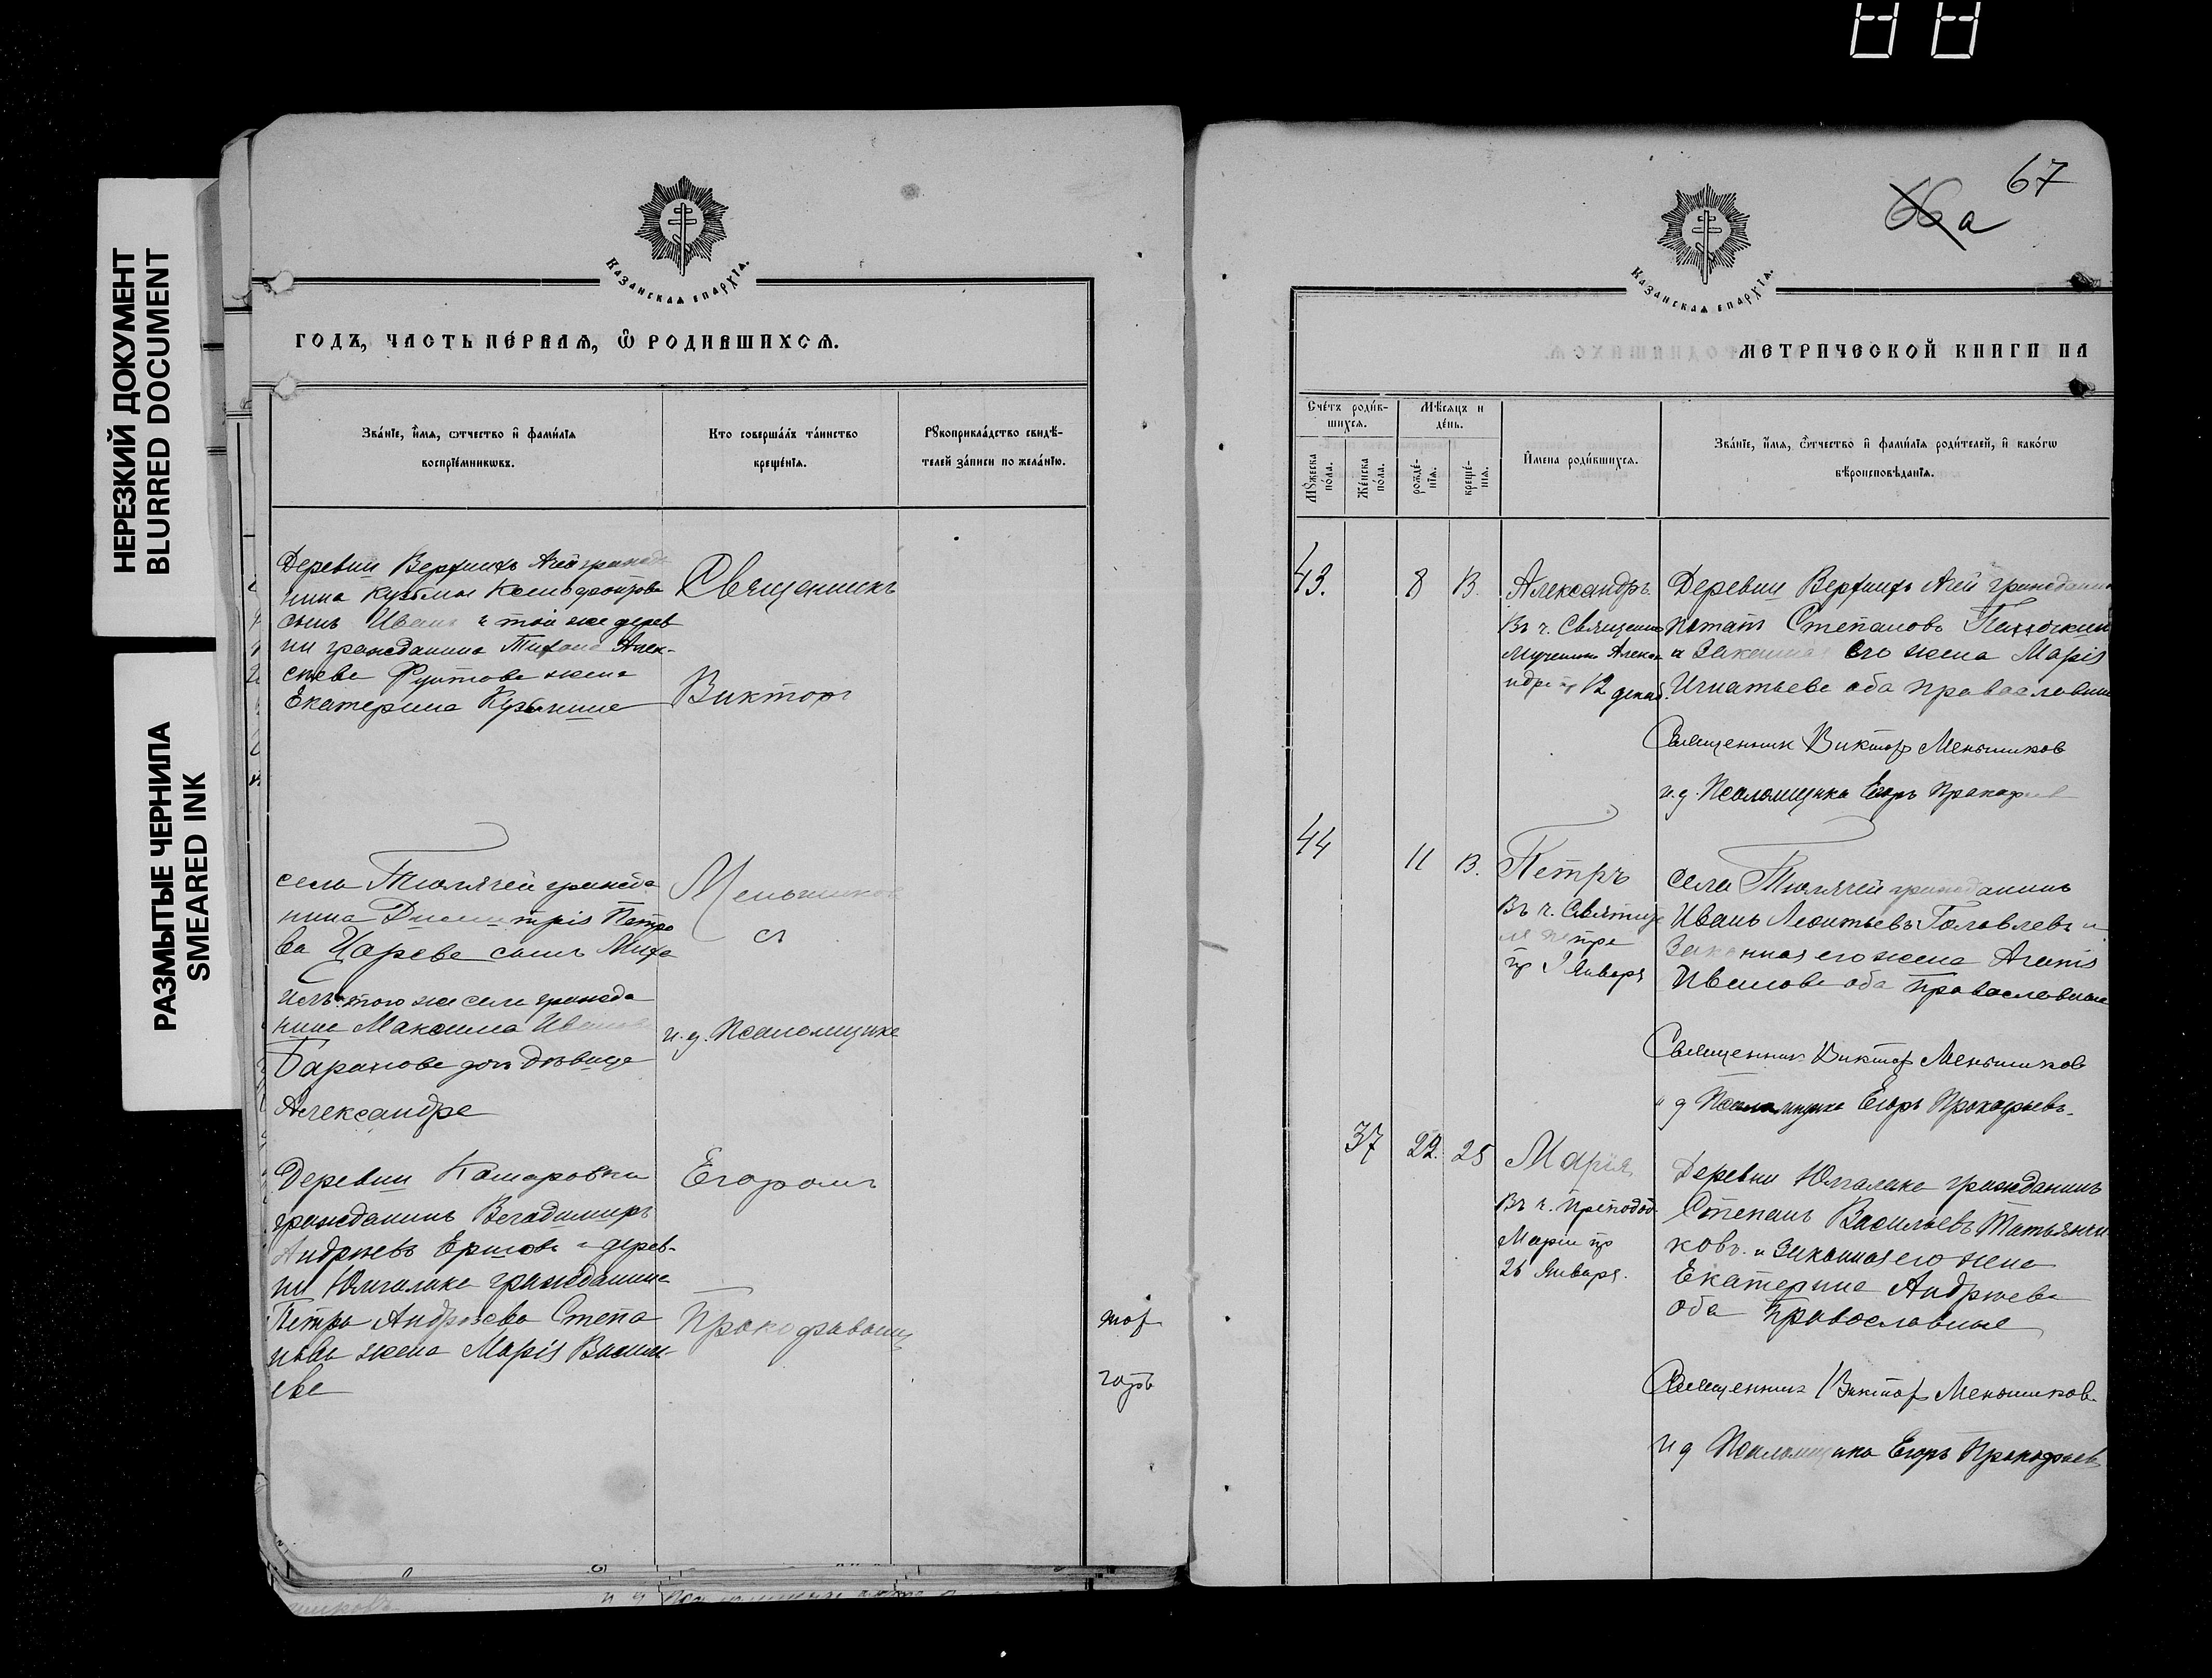 НЕРЕЗКИЙ ДОКУМЕНТ
BLURRED DOCUMENT
РАЗМЫТЫЕ ЧЕРНИЛА
SMEARED INK
Казанская епархїя.
годъ, часть пе́рвая, ѽ родившихся.
Зва́нїе, и҆́мя, ѻтчество и҆ фами́лїя
воспрїе́мниковъ.
Кто соверша́лъ та́инство
креще́нїя.
Рꙋкоприкла́дство свидѣ́-
телей за́писи по жела́нїю.
Деревни Верхнихъ Агей граж
нина Кузьмы
сынъ Иванъ и той же дерев
ни гражданина Тихона Алек-
сѣева жена
Екатерина
Священникъ
Викторъ
села Тюлячей гражда
нина Димитрія Петро
ва Царева сынъ Миха
илъ того же села гражда
нина Максима Иванов
Баранова дочь дѣвица
Александра
Меньшиков
съ
и.д. Псаломщика
Деревни Комаровки
гражданинъ Владимиръ
Андреевъ Ершовъ и дерев-
ни Юмгалака гражданина
Петра Андреева Степа
нова жена Марія Василь
ева
Егоромъ
Прокофьевым
тор
67
66а
Казанская епархїя.
метрической книги на
Сче́тъ роди́в-
шихся.
Мѣ́сяцъ и
де́нь.
Мꙋ́жеска по́ла.
Же́нска по́ла.
рожде́-
нїя.
креще́-
нїя.
И҆мена роди́вшихся.
Зва́нїе, и҆́мя, ѻ҆́тчество и҆ фами́лїя роди́телей, и҆ како́гѡ
вѣроисповѣ́данїя.
43.
8
13.
Александръ
Въ ч. Священно
мученика Алекса
ндра пр 12 декаб.
Деревни Верхнихъ Агей граждани
Потапъ Степановъ
и Законная его жена Марія
Игнатьева оба православны
Священник Виктор Меньшиков
и.д. Псаломщика Егоръ Прокофьев
44
11
13.
Петръ
Въ ч. Святите
ля Петра
пр Января
села Тюлячей гражданинъ
Иванъ Леонтьевъ Головлевъ и
Законная его жена Агапія
Иванова оба Православные
Священник Виктор Меньшиков
и д Псаломщика Егоръ Прокофьевъ.
37
22.
25
Марія
Въ ч. Преподоб
Маріи пр
26 Января.
Деревни Юмгалака гражданинъ
Степанъ Васильевъ Татьянчи
ковъ. и Законная его жена
Екатерина Андреева
оба Православные
Священник Виктор Меньшиков
и д Псаломщика Егоръ Прокофьев